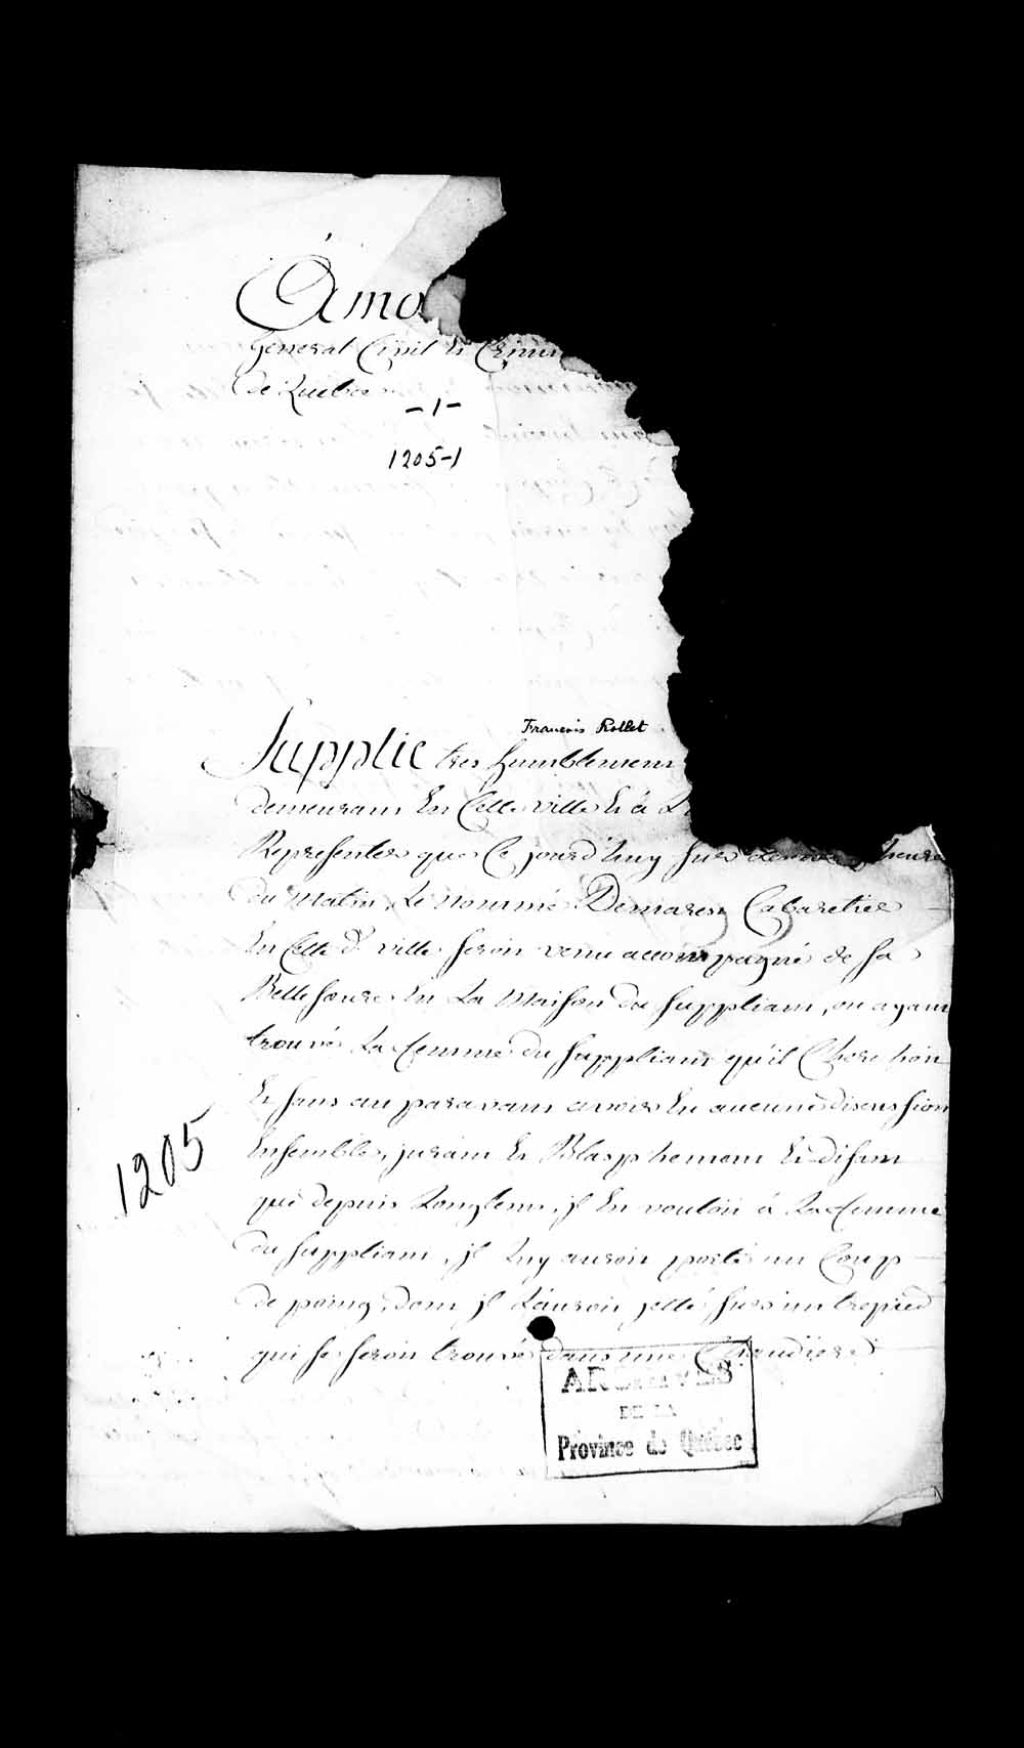 A mo
General Civil Et Crimin
de Quebec
-1-
1205-1
Francois Rollet
Supplie tres humblement
demeurant En Cette ville Et a
Representer que Ce jourd'huy sur heure
du Matin, Le nommé Demarest Cabaretier
En Cette de. ville seroit venu accompagné de sa
Belle soeure En La Maison du suppliant, ou ayant
trouvé La femme du suppliant qu'il
Et sans au paravant avoir Eu aucune discussion
Ensemble, jurant Et Blasphemant Et disant
que depuis Longtems, il En vouloit à La femme
du suppliant, il Luy auroit porté un Coup
de poing, dont il L'auroit jetté sur un trepied
qui se seroit trouvé dans une Chaudiere
1205
ARCHIVES
DE LA
Province de Québec